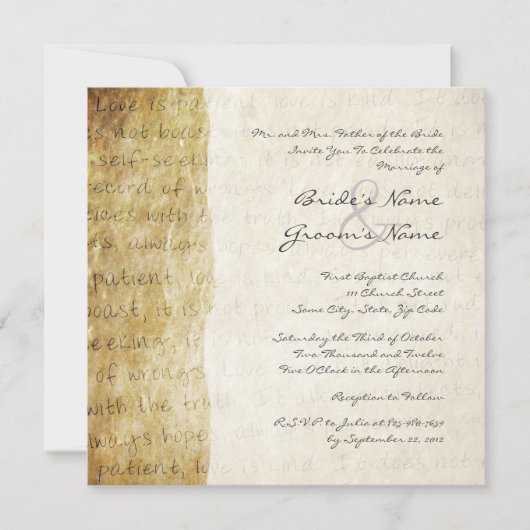 Love is patient, love is kind. It does
es not boast, it
self-seeking
record of wrongs. t del
oices with the truth. It always prot
s, always hopes, always perseveres
patient, love is
boast, it is not pr
eeking, it is not
of wrongs. Love
with the truth. It a
always hopes, al
patient, love is kind. It does not e
Mr. and Mrs. Father of the Bride
Invite You To Celebrate the
Marriage of
Bride's Name
&
Groom's Name
First Baptist Church
111 Church Street
Some City, State, Zip Code
Saturday the Third of October
Two Thousand and Twelve
Five O'Clock in the Afternoon
Reception to Follow
R.S.V.P to Julia at 895-980-7659
by September 22, 2012